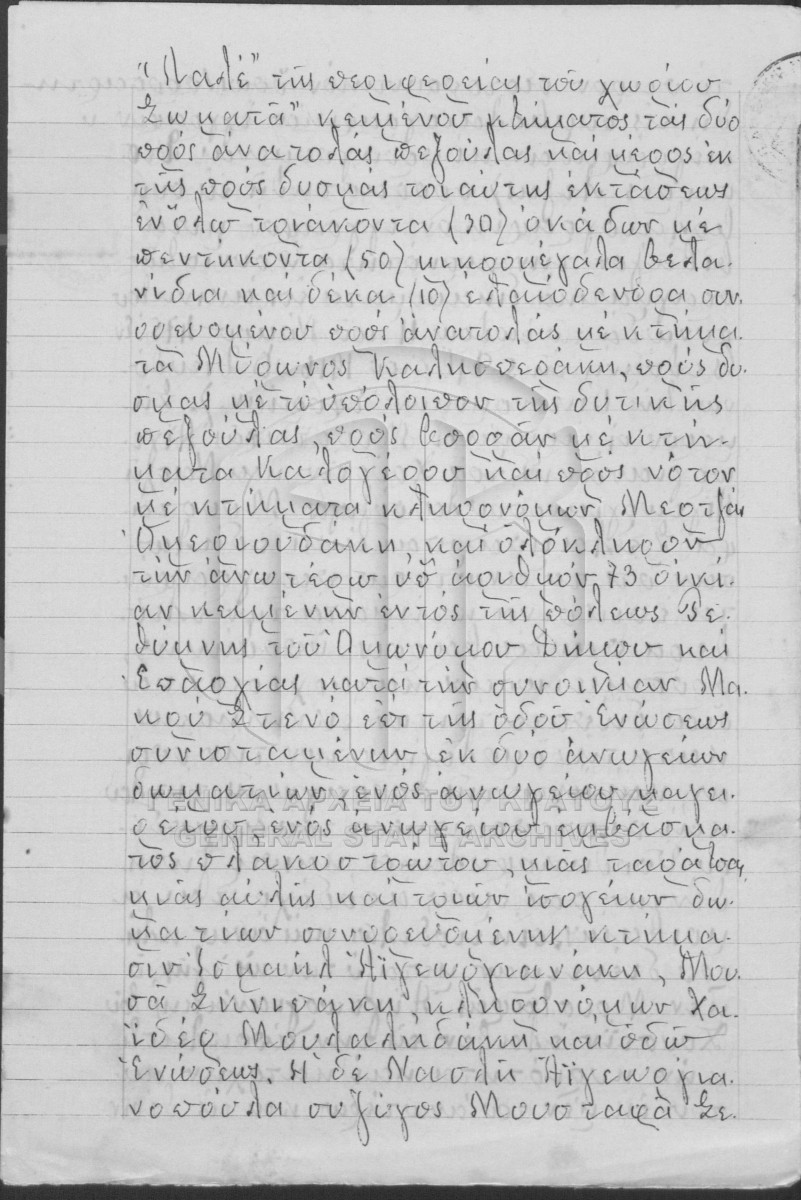 "Καλέ" τῆς περιφερείας τοῦ χωρίου
Σωματᾶ" κειμένου κτήματος τάς δύο
πρός ἀνατολάς πεζούλας καί μέρος ἐκ
τῆς πρός δυσμάς τοιαύτης ἐκτάσεως
ἐν ὅλῳ τριάκοντα (30) ὀκάδων μέ
πεντήκοντα (50) μικρομέγαλα βελα-
νίδια καί δέκα (10) ἐλαιόδενδρα συν-
ορευομένου πρός ἀνατολάς μέ κτήμα-
τα Μύρωνος Καλησπεράκη, πρός δυ-
σμας μέ τό ὑπόλοιπον τῆς δυτικῆς
πεζούλας, πρός βορρᾶν μέ κτή-
ματα Καλογέρου καί πρός νότον
μέ κτήματα κληρονόμων Μερτζάν
Ὀμεριουδάκη, καί ὁλόκληρον
τήν ἀνωτέρω ὑπ' ἀριθμόν 73 οἰκί-
αν κειμένην ἐντός τῆς πόλεως Ρε-
θύμνης τοῦ Ὁμωνύμου Δήμου καί
Ἐπαρχίας κατά τήν συνοικίαν Μα-
κρύ Στενό ἐπί τῆς ὁδοῦ Ἑνώσεως
συνισταμένην ἐκ δύο ἀνωγείων
δωματίων, ἑνός ἀνωγείου μαγει-
ρείου ἑνός ἀνωγείου ἐμβάσμα-
τος πλακοστρώτου, μιᾶς ταράτσας,
μιᾶς αὐλῆς καί τριῶν ἰσογείων δω-
ματίων συνορευομένην κτήμα-
σιν Ἰσμαήλ Ἀϊγεωργιανάκη, Μου-
σᾶ κληρονόμων Χα-
ϊδέρ Μουλαληδάκη καί ὁδῷ
Ἑνώσεως. Ἡ δέ Νασλή Ἀϊγεωργια-
νοπούλα συζύγος Μουσταφᾶ Σε-
ΓΕΝΙΚΑ ΑΡΧΕΙΑ ΤΟΥ ΚΡΑΤΟΥΣ
GENERAL STATE ARCHIVES